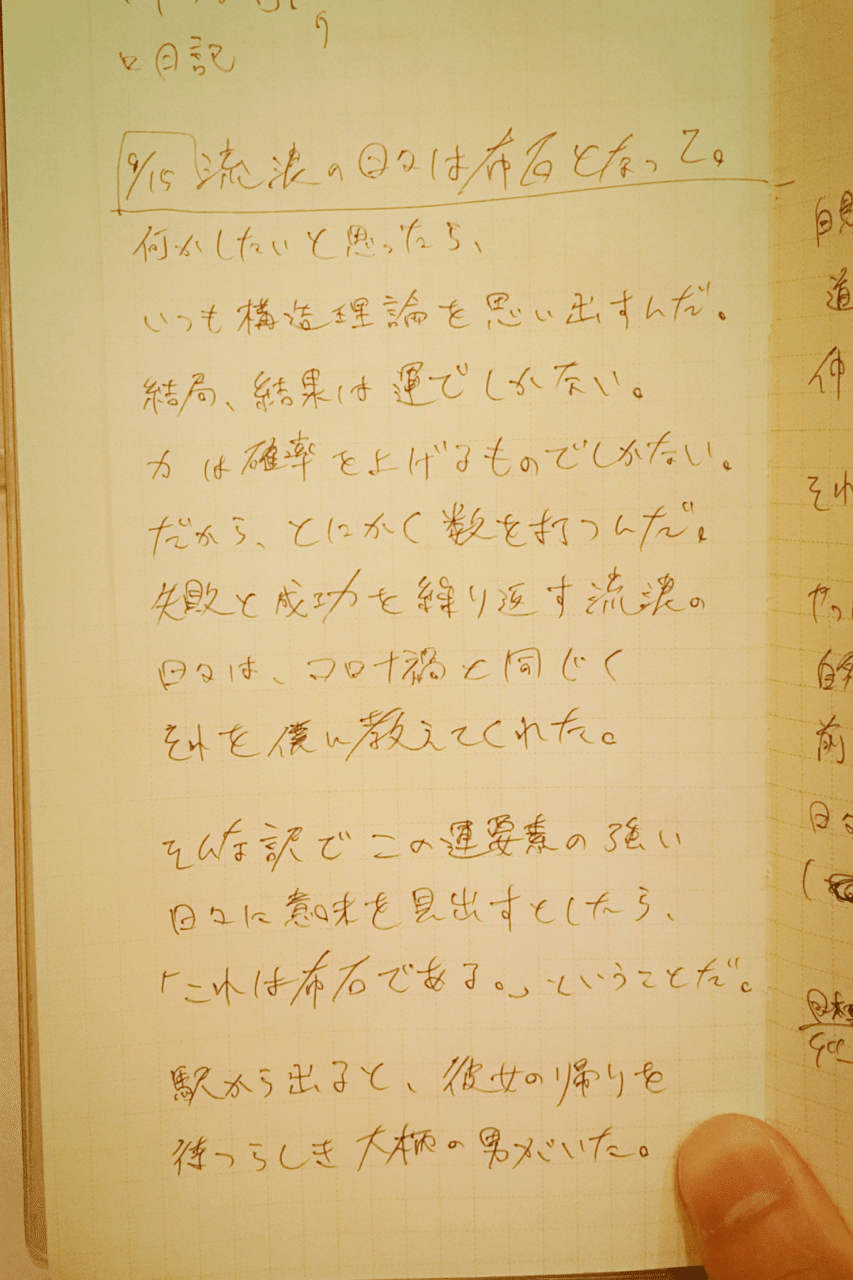 ロ日記
9/15 流浪の日々は布石となって。
何かしたいと思ったら、
いつも構造理論を思い出すんだ。
結局、結果は運でしかない。
力は確率を上げるものでしかない。
だから、とにかく数を打つんだ。
失敗と成功を繰り返す流浪の
日々は、コロナ禍と同じく
それを僕に教えてくれた。
そんな訳でこの運要素の強い
日々に意味を見出すとしたら、
「これは布石である。」ということだ。
駅から出ると、彼女の帰りを
待つらしき大柄の男がいた。
道
仲
それ
やっ
前